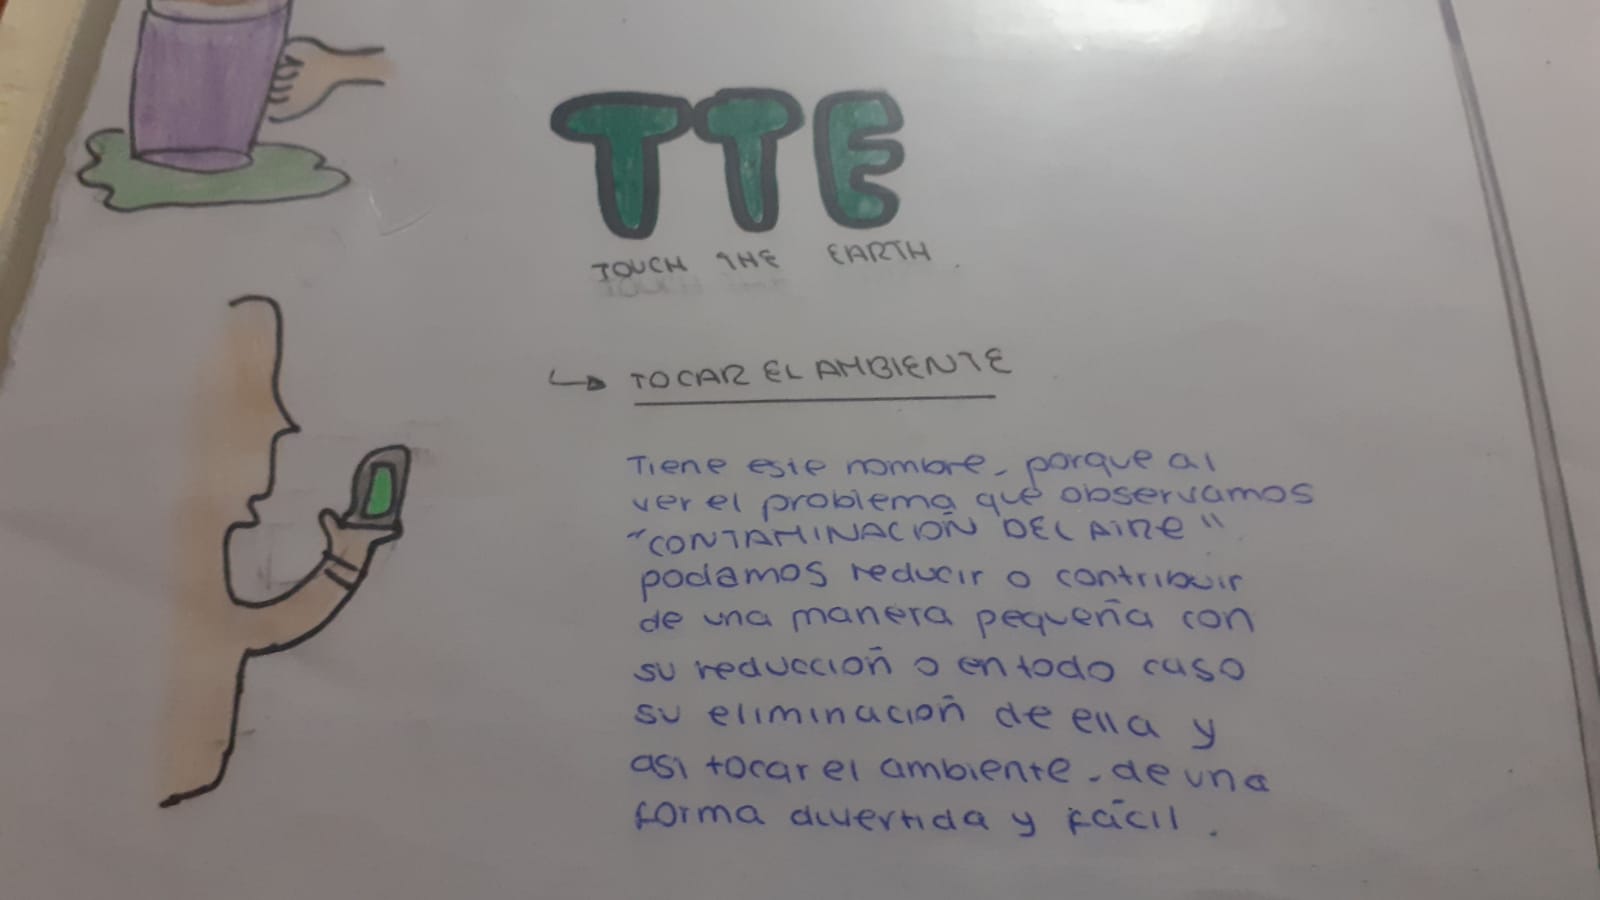 TTE
TOUCH THE EARTH.
TOCAR EL AMBIENTE
Tiene este nombre, porque al
ver el problema que observamos
"CONTAMINACIÓN DEL AIRE"
podamos reducir o contribuir
de una manera pequeña con
su reducción o en todo caso
su eliminación de ella y
asi tocar el ambiente, de una
forma divertida y fácil.